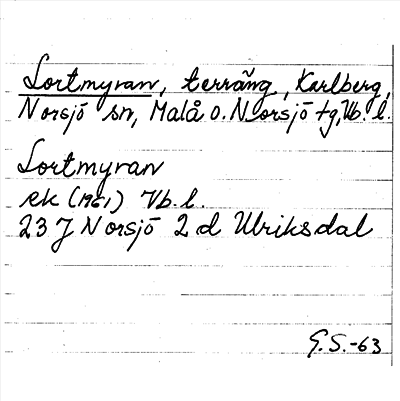 Lortmyran, terräng, Karlberg,
Norsjö sn, Malå o. Norsjö tg, Vb. l.
Lortmyran
ek (1961) Vb. l.
23 J Norsjö 2 d Ulriksdal
G. S. -63